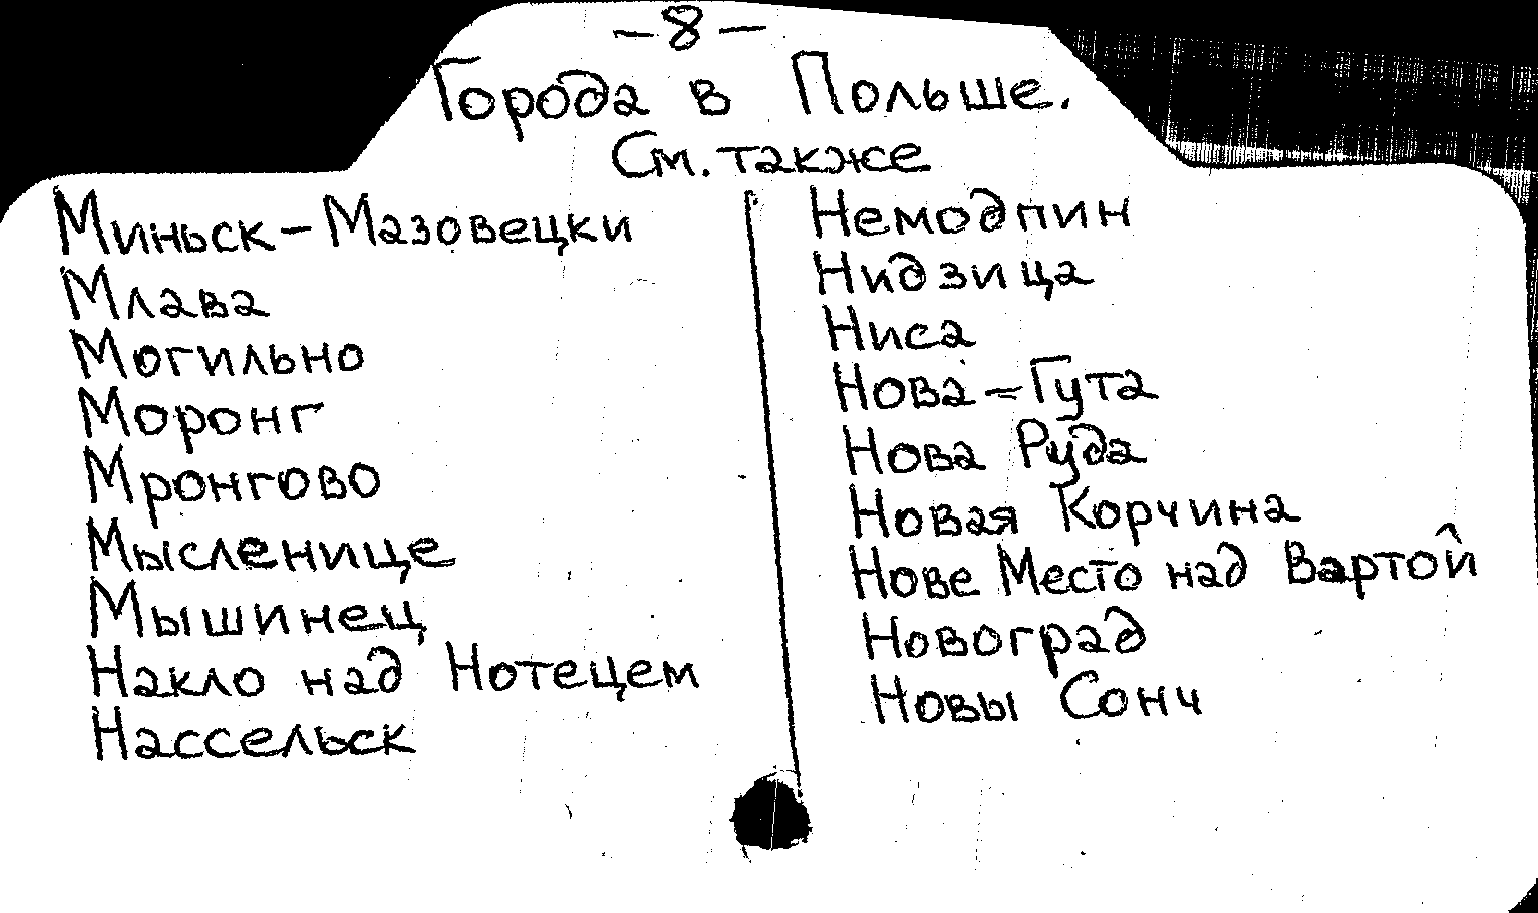 – 8 –
Города в Польше.
См. также
Миньск – Мазовецки
Млава
Могильно
Моронг
Мронгово
Мысленице
Мышинец
Накло над Нотецем
Нассельск
Немодпин
Нидзица
Ниса
Нова – Гута
Нова Руда
Новая Корчина
Нове Место над Вартой
Новоград
Новы Сонч